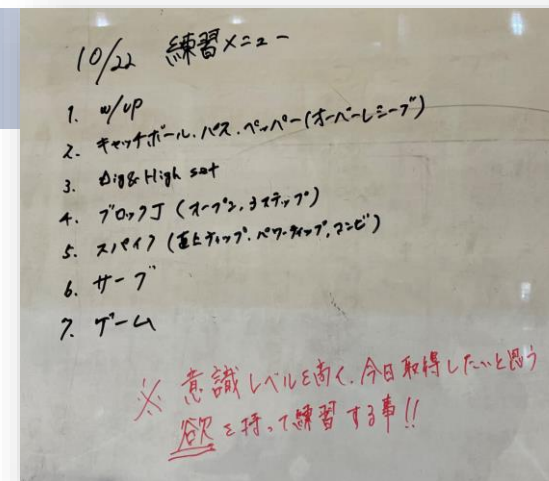 10/22 練習メニュー
1. w/up
2. キャッチボール、パス、ペッパー(オーバーレシーブ)
3. Dig & High set
4. ブロックJ (オープン、3ステップ)
5. スパイク (直上トップ、パワーティップ、コンビ)
6. サーブ
7. ゲーム
※ 意識レベルを高く、今日取得したいと思う
欲を持って練習する事!!